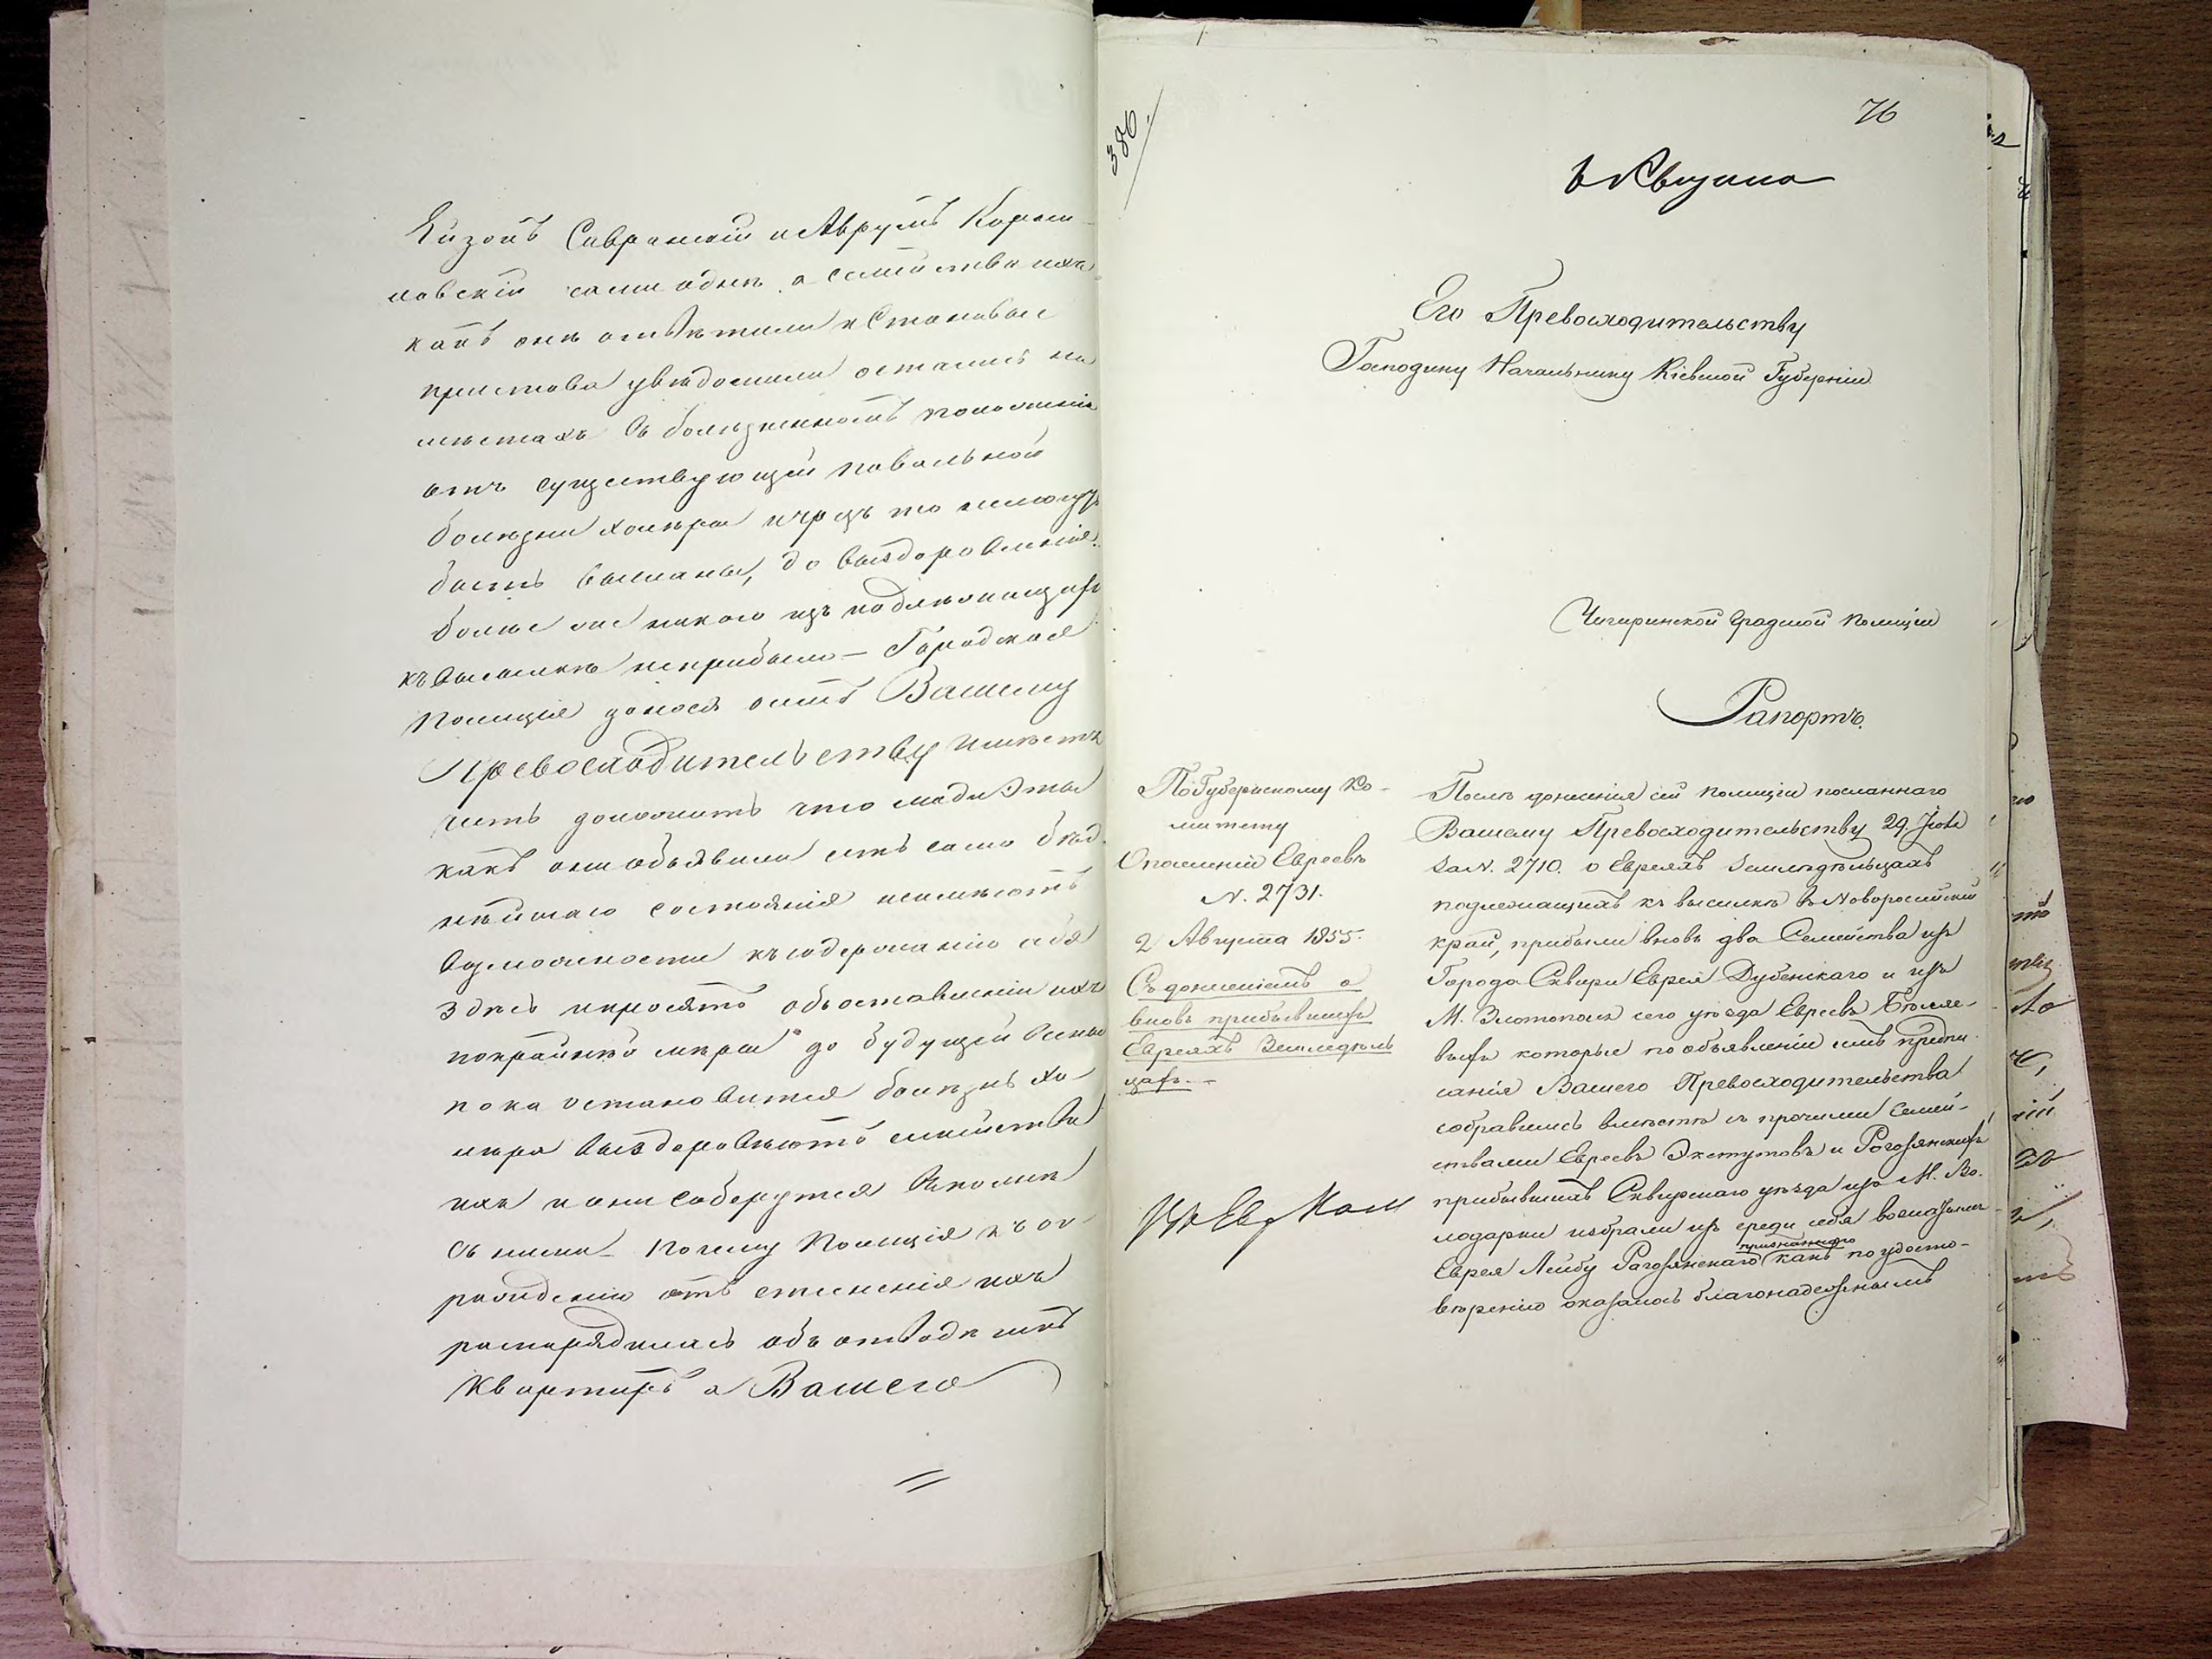 Ейзокъ Савранскій и Аврумъ Корот-
повскій сами одни, а семейства ихъ
какъ они отвѣтили и Становые
пристава увѣдомили остались на
мѣстахъ въ болѣзненномъ положеніи
отъ существующей повальной
болѣзни холеры чрезъ то немогутъ
быть высланы, до выздоровленія.
болѣе же никого изъ подлежащихъ
къ высылкѣ неприбыло — Городская
Полиція донося о томъ Вашему
Превосходительству имѣетъ
честь доложить что люди Эты
какъ они объявили есть само бѣд-
нѣйшаго состоянія неимѣютъ
возможности къ содержанію себя
здѣсь и просятъ объ оставленіи ихъ
покрайнѣ мѣрѣ до будущей весны
пока остановится болѣзнь хо-
лера выздоровѣютъ семейства
ихъ и они соберутся вполнѣ
съ ними — Почему Полиція къ ог-
ражденію отъ стесненія ихъ
распорядилась объ отводѣ имъ
Квартиръ а Вашего
386.
76
6 Августа
Его Превосходительству
Господину Начальнику Кіевской Губерніи
Чигиринской Градской Полиціи
Рапортъ.
По Губернскому Ко-
митету
О поселеніи Евреевъ
N. 2731.
2 Августа 1855.
Съ донесеніемъ о
вновь прибывшихъ
Евреяхъ Земледѣль
цахъ. —
Послѣ донесенія сей Полиціи посланнаго
Вашему Превосходительству 29. Іюля
за N. 2710. о Евреяхъ Земледѣльцахъ
подлежащихъ къ высылкѣ въ Новоросійскій
край, прибыли вновь два Семейства изъ
Города Сквири Еврея Дубенскаго и изъ
М. Златополя сего уѣзда Евреевъ Бѣляе-
выхъ которые по объявленіи имъ предпи-
санія Вашего Превосходительства
собравшись вмѣстѣ съ прочими Семей-
ствами Евреевъ Экстутовъ и Рогозянскихъ
прибывшихъ Сквирскаго уѣзда изъ М. Во-
лодарки избрали изъ среди себя
Еврея Лейбу Рагозянскаго признаннаго какъ по удосто-
вѣренію оказалось благонадежнымъ